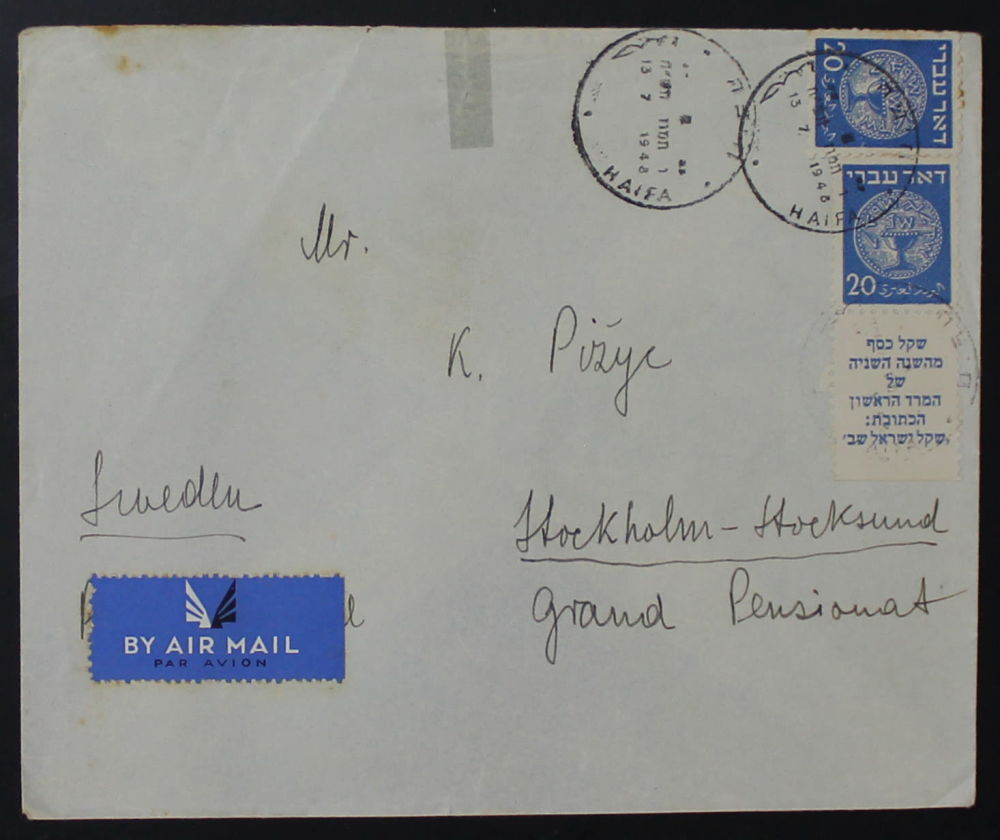 13 7 1948
HAIFA
13 7 1948
HAIFA
דאר עברי
20
דאר עברי
20
שקל כסף
מהשנה השניה
של
המרד הראשון
הכתובת:
שקל ישראל שב׳
Mr.
K. Pižyc
Sweden
Stockholm - Stocksund
Grand Pensionat
BY AIR MAIL
PAR AVION